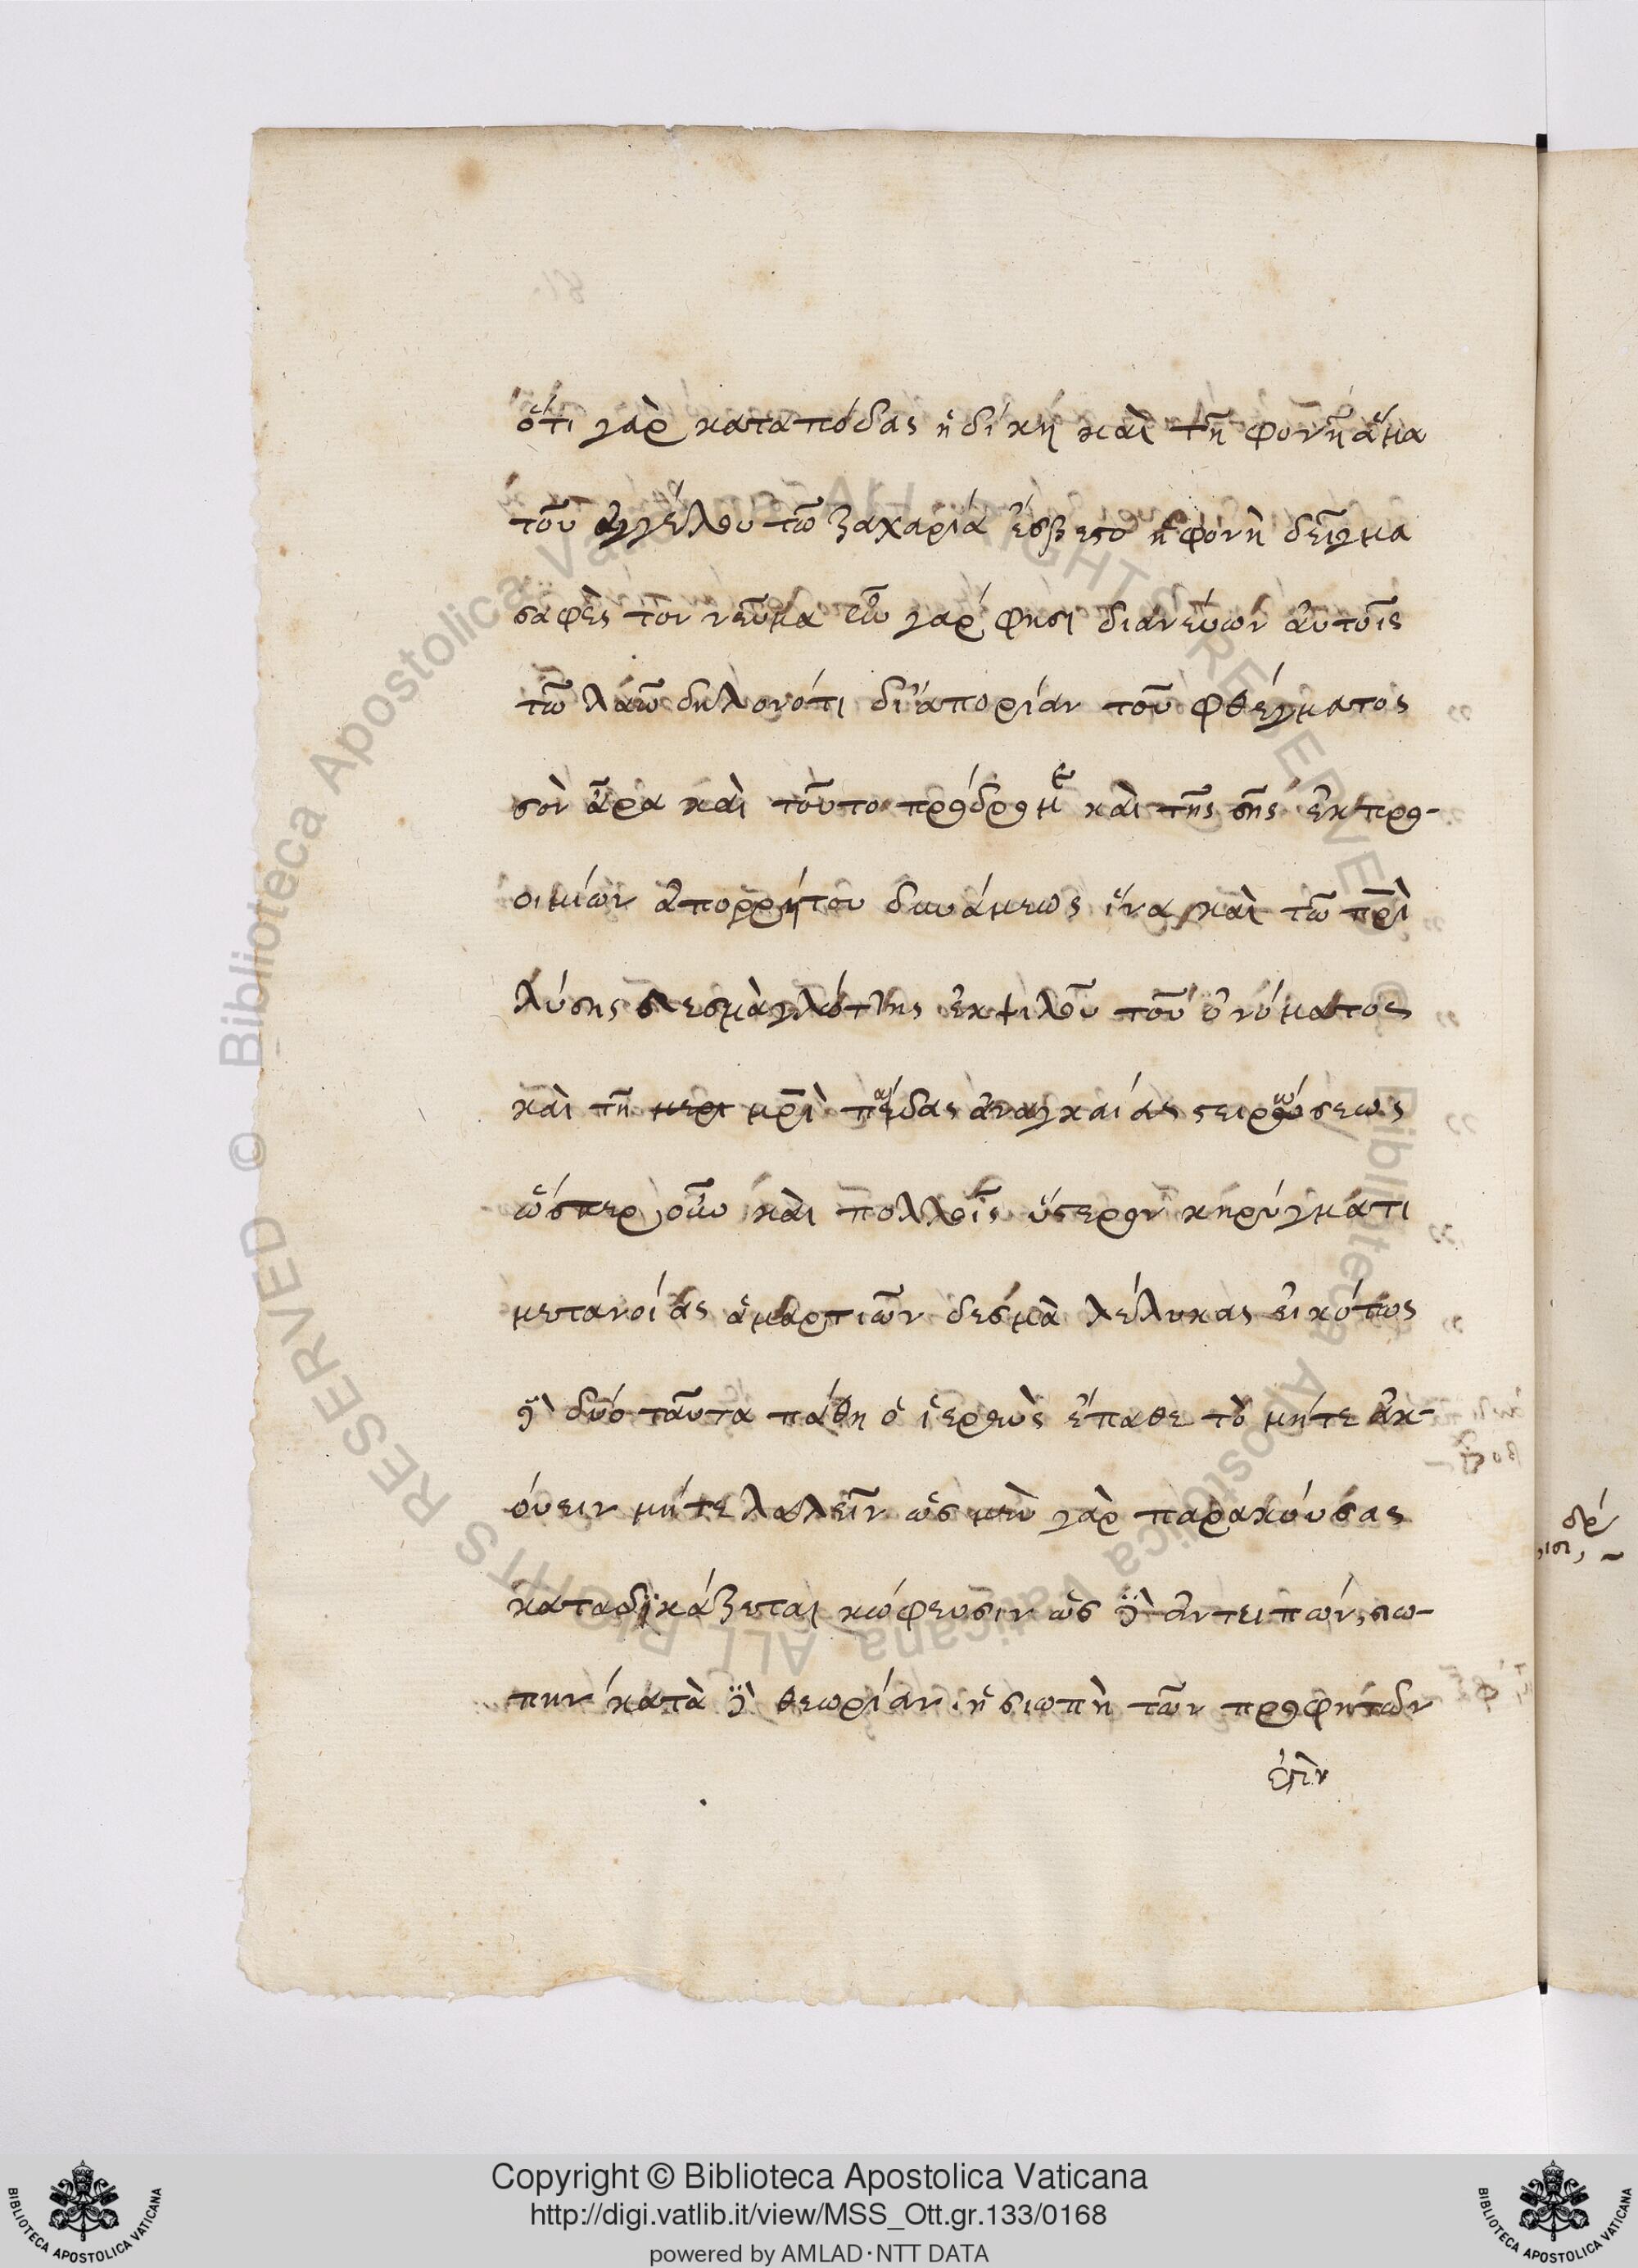 ὅτι γὰρ καταπόδας ἡ δίκη καὶ τῆ φονῆ ἅμα
τοῦ ἀγγέλου τῶ ζαχαρία ἐσβεστο ἡ φονὴ δεῖγμα
σαφὲς τον νεῦμα ἦν γαρ φησι διανεύων αὐτοῖς
τῶ λαῶ δηλονότι δι' ἀπορίαν τοῦ φθέγματος
σὸν ἆρα καὶ τοῦτο πρόδρομε καὶ τῆς σῆς ἐκ προ-
οιμίων ἀπορρήτου δυνάμεως ἵνα καὶ τῶ πρὶ
λύσης δεσμὰ γλόττης ἐκ ψιλοῦ τοῦ ὀνόματος
καὶ τῆ μρὶ πέδας ἀναγκαίας στειρώσεως
ὥσπερ οὖν καὶ πολλοῖς ὕστερον κηρύγματι
μετανοίας ἁμαρτιῶν δεσμὰ λέλυκας εἰκότως
δὲ δύο ταῦτα πάθη ὁ ἱερεὺς ἔπαθε τὸ μήτε ἀκ-
όυειν μήτε λαλεῖν ὡς μὲν γὰρ παρακούσας
καταδικάζεται κώφευσιν ὡς δὲ ἀντειπών, σιω-
πην κατὰ δὲ θεωρίαν ἡ σιωπὴ τῶν προφητῶν
ἐστὶν
Copyright © Biblioteca Apostolica Vaticana
http://digi.vatlib.it/view/MSS_Ott.gr.133/0168
powered by AMLAD·NTT DATA
BIBLIOTECA APOSTOLICA VATICANA
BIBLIOTECA APOSTOLICA VATICANA
© Biblioteca Apostolica Vaticana ALL RIGHTS RESERVED